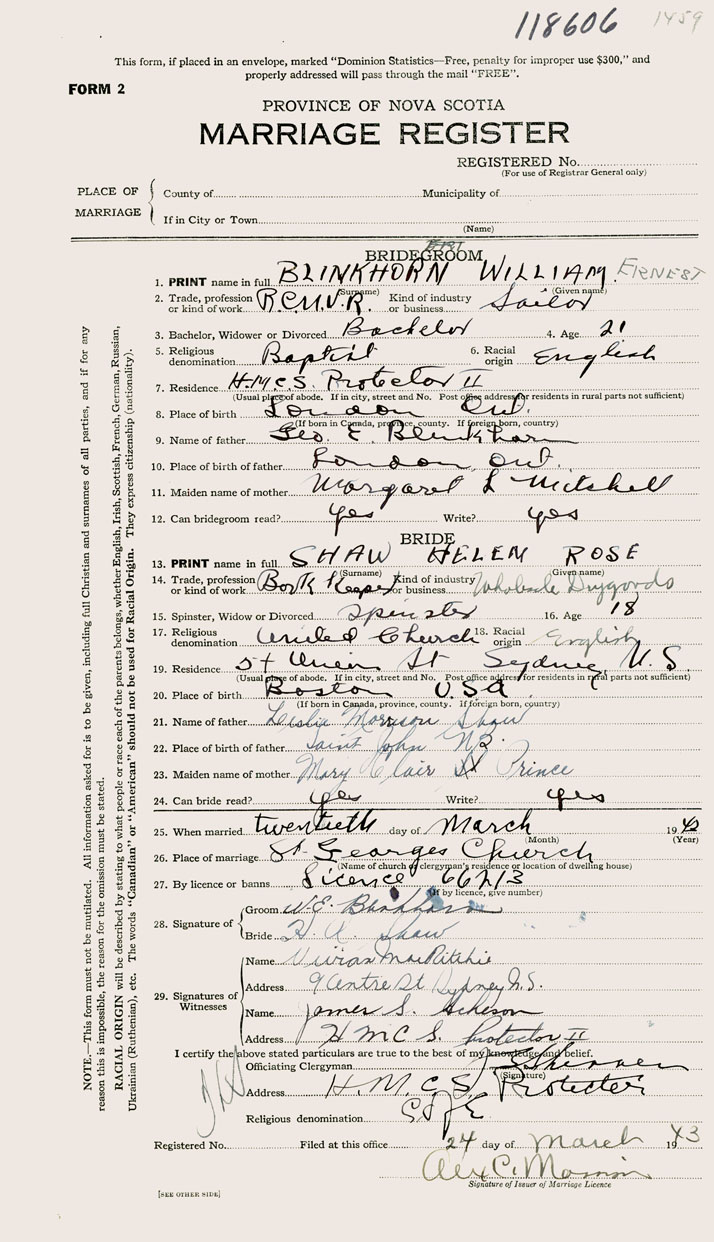 118606 1459
This form, if placed in an envelope, marked "Dominion Statistics—Free, penalty for improper use $300," and
properly addressed will pass through the mail "FREE".
FORM 2
PROVINCE OF NOVA SCOTIA
MARRIAGE REGISTER
REGISTERED No.
(For use of Registrar General only)
PLACE OF MARRIAGE
County of Municipality of
If in City or Town
(Name)
BRIDEGROOM
1. PRINT name in full BLINKHORN WILLIAM ERNEST
(Surname) (Given name)
2. Trade, profession or kind of work R.C.N.V.R. Kind of industry or business Sailor
3. Bachelor, Widower or Divorced Bachelor 4. Age 21
5. Religious denomination Baptist 6. Racial origin English
7. Residence H.M.C.S. Protector II
(Usual place of abode. If in city, street and No. Post office address for residents in rural parts not sufficient)
8. Place of birth London Ont.
(If born in Canada, province, county. If foreign born, country)
9. Name of father Geo. E. Blinkhorn
10. Place of birth of father London, Ont.
11. Maiden name of mother Margaret L Mitchell
12. Can bridegroom read? yes Write? yes
BRIDE
13. PRINT name in full SHAW HELEN ROSE
(Surname) (Given name)
14. Trade, profession or kind of work Book Keeper Kind of industry or business Wholesale Drygoods
15. Spinster, Widow or Divorced Spinster 16. Age 18
17. Religious denomination United Church 18. Racial origin English
19. Residence Union St Sydney, N.S.
(Usual place of abode. If in city, street and No. Post office address for residents in rural parts not sufficient)
20. Place of birth Boston USA
(If born in Canada, province, county. If foreign born, country)
21. Name of father Leslie Morrison Shaw
22. Place of birth of father Saint John NB.
23. Maiden name of mother Mary Clair Prince
24. Can bride read? yes Write? yes
25. When married twentieth day of March 1943
(Month) (Year)
26. Place of marriage St. Georges Church
(Name of church or clergyman's residence or location of dwelling house)
27. By licence or banns Licence 66213
(If by licence, give number)
28. Signature of
Groom W.E. Blinkhorn
Bride H. R. Shaw
29. Signatures of Witnesses
Name Vivian MacRitchie
Address 9 Centre St Sydney N.S.
Name James S. Acheson
Address H M C S. Protector II
I certify the above stated particulars are true to the best of my knowledge and belief.
Officiating Clergyman
(Signature)
Address H.M.C.S. Protector
Religious denomination C of E
Registered No. Filed at this office 24 day of March 1943
Signature of Issuer of Marriage Licence
[SEE OTHER SIDE]
NOTE.—This form must not be mutilated. All information asked for is to be given, including full Christian and surnames of all parties, and if for any
reason this is impossible, the reason for the omission must be stated.
RACIAL ORIGIN will be described by stating to what people or race each of the parents belongs, whether English, Irish, Scottish, French, German, Russian,
Ukrainian (Ruthenian), etc. The words "Canadian" or "American" should not be used for Racial Origin. They express citizenship (nationality).